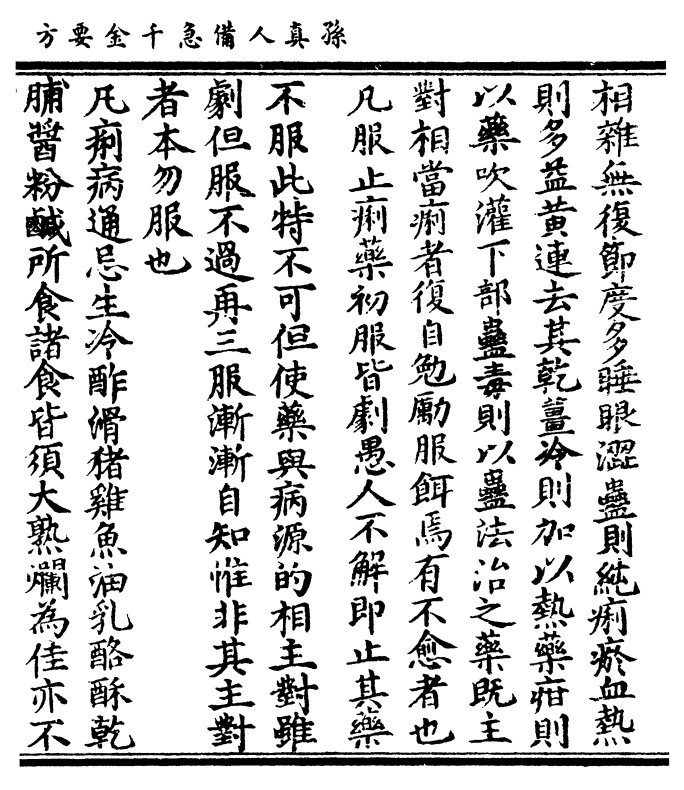 孫真人備急千金要方
相雜無復節度多睡眼澀蠱則純痢瘀血熱
則多益黃連去其乾薑冷則加以熱藥疳則
以藥吹灌下部蠱毒則以蠱法治之藥既主
對相當痢者復自勉勵服餌焉有不愈者也
凡服止痢藥初服皆劇愚人不解即止其藥
不服此特不可但使藥與病源的相主對雖
劇但服不過再三服漸漸自知惟非其主對
者本勿服也
凡痢病通忌生冷酢滑猪雞魚油乳酪酥乾
脯醬粉鹹所食諸食皆須大熟爛為佳亦不